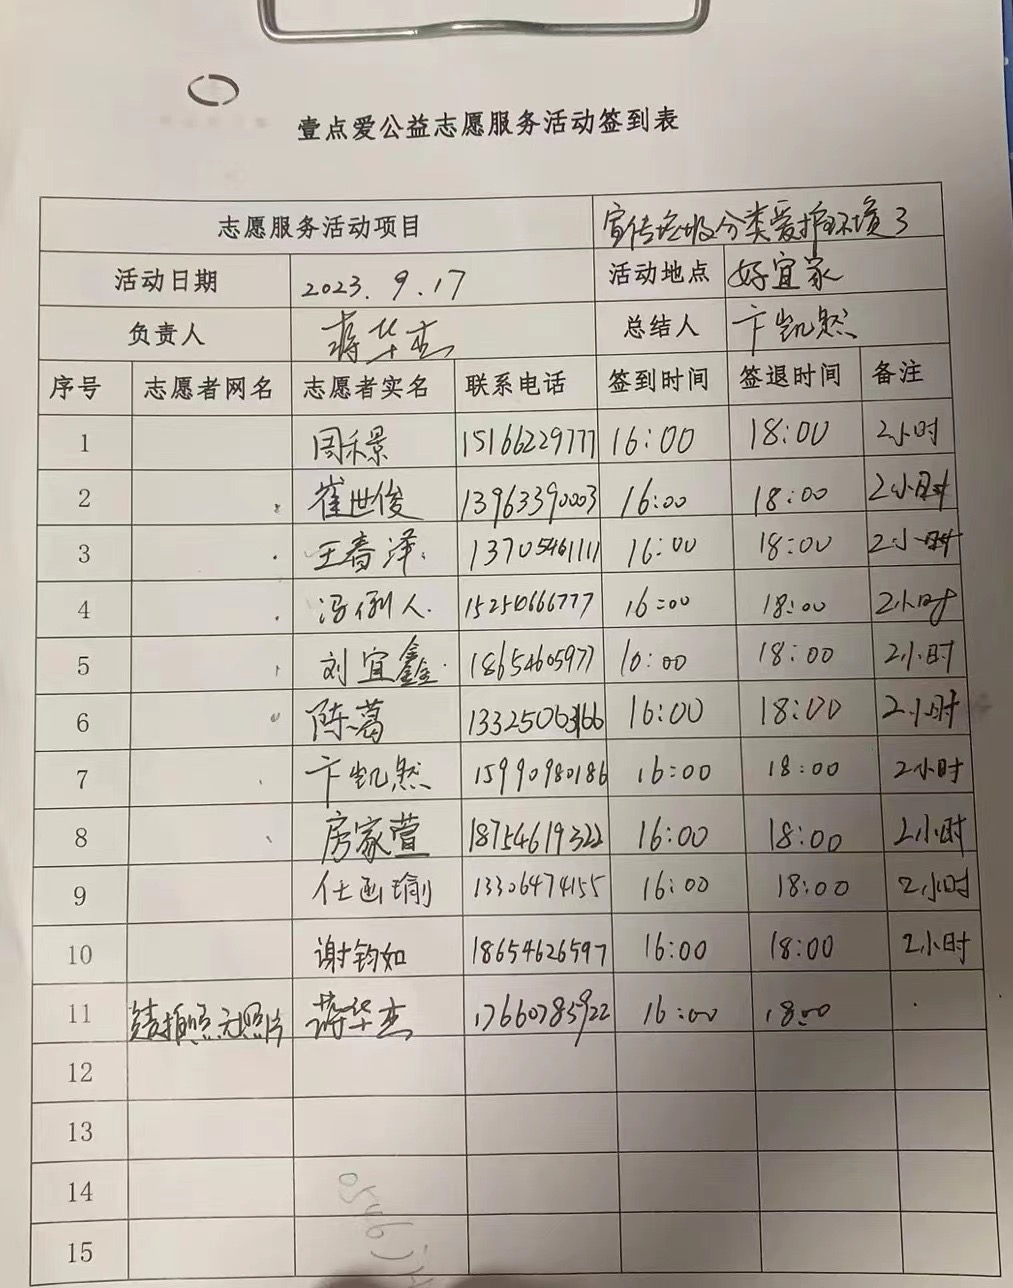 壹点爱公益志愿服务活动签到表
志愿服务活动项目 宣传垃圾分类爱护环境3
活动日期 2023.9.17 活动地点 好宜家
负责人 蒋华杰 总结人 卞凯然
序号 志愿者网名 志愿者实名 联系电话 签到时间 签退时间 备注
1 周禾景 15166229777 16:00 18:00 2小时
2 崔世俊 13963390003 16:00 18:00 2小时
3 王春泽 13705461111 16:00 18:00 2小时
4 冯俐人 15250666777 16:00 18:00 2小时
5 刘宜鑫 18654605977 16:00 18:00 2小时
6 陈葛 13325063166 16:00 18:00 2小时
7 卞凯然 15990980186 16:00 18:00 2小时
8 房家萱 18754619322 16:00 18:00 2小时
9 任函瑜 13306474155 16:00 18:00 2小时
10 谢钧如 18654626597 16:00 18:00 2小时
11 蒋华杰 17660785922 16:00 18:00
12
13
14
15